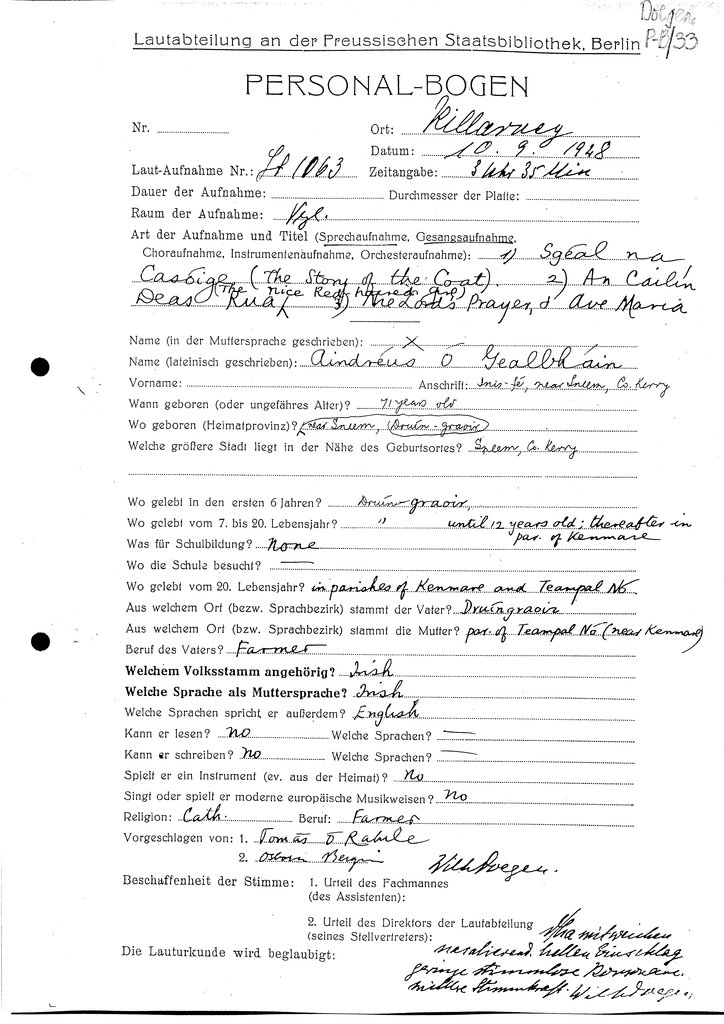 Doegen
P-B/33
Lautabteilung an der Preussischen Staatsbibliothek, Berlin
PERSONAL-BOGEN
Nr. Ort: Killarney
Datum: 10. 9. 1928
Laut-Aufnahme Nr.: 1063 Zeitangabe: 3 Uhr 35 Min
Dauer der Aufnahme: Durchmesser der Platte:
Raum der Aufnahme:
Art der Aufnahme und Titel (Sprechaufnahme, Gesangsaufnahme,
Choraufnahme, Instrumentenaufnahme, Orchesteraufnahme): 1) Sgéal na
Casóige (The Story of the Coat). 2) An Cailín
(The nice Red haired Girl)
Deas Rua, 3) The Lord's Prayer, & Ave Maria
Name (in der Muttersprache geschrieben): X
Name (lateinisch geschrieben): Aindréus Ó Gealbháin
Vorname: Anschrift: Inis-fé, near Sneem, Co. Kerry
Wann geboren (oder ungefähres Alter)? 71 years old
Wo geboren (Heimatprovinz)? near Sneem, (Druim-graoir)
Welche größere Stadt liegt in der Nähe des Geburtsortes? Sneem, Co. Kerry
Wo gelebt in den ersten 6 Jahren? Druim graoir,
Wo gelebt vom 7. bis 20. Lebensjahr? " until 12 years old; thereafter in
par. of Kenmare
Was für Schulbildung? None
Wo die Schule besucht? —
Wo gelebt vom 20. Lebensjahr? in parishes of Kenmare and Teampal Nó
Aus welchem Ort (bezw. Sprachbezirk) stammt der Vater? Druim graoir
Aus welchem Ort (bzw. Sprachbezirk) stammt die Mutter? par. of Teampal Nó (near Kenmare)
Beruf des Vaters? Farmer
Welchem Volksstamm angehörig? Irish
Welche Sprache als Muttersprache? Irish
Welche Sprachen spricht er außerdem? English
Kann er lesen? No Welche Sprachen? —
Kann er schreiben? No Welche Sprachen? —
Spielt er ein Instrument (ev. aus der Heimat)? No
Singt oder spielt er moderne europäische Musikweisen? No
Religion: Cath. Beruf: Farmer
Vorgeschlagen von: 1. Tomás Ó Raile
2. Osborn Bergin
Wilh. Doegen.
Beschaffenheit der Stimme: 1. Urteil des Fachmannes
(des Assistenten):
2. Urteil des Direktors der Lautabteilung
(seines Stellvertreters): mit weichen
nasalierend. hellen Einschlag
geringe stimmlose
Die Lauturkunde wird beglaubigt:
mittlere Stimmkraft. Wilh. Doegen.